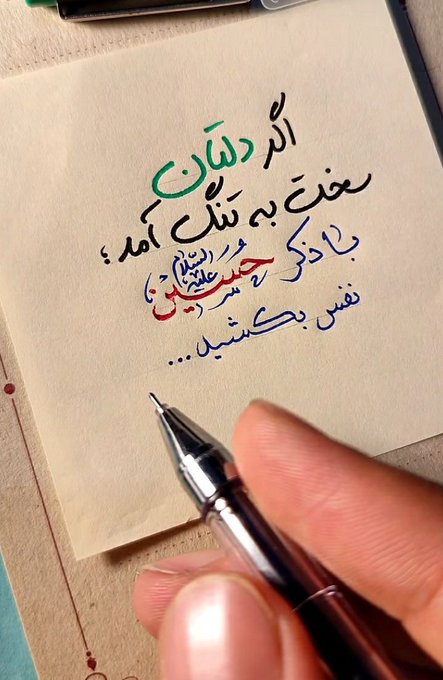 اگر دلتان
سخت به تنگ آمد؛
با ذکر حسین علیه السلام
نفس بکشید...